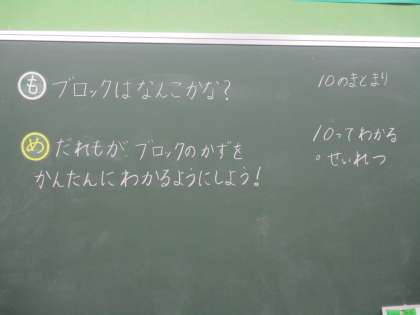 も ブロックはなんこかな?
め だれもが ブロックのかずを
かんたんに わかるようにしよう!
10のまとまり
10ってわかる
。せいれつ